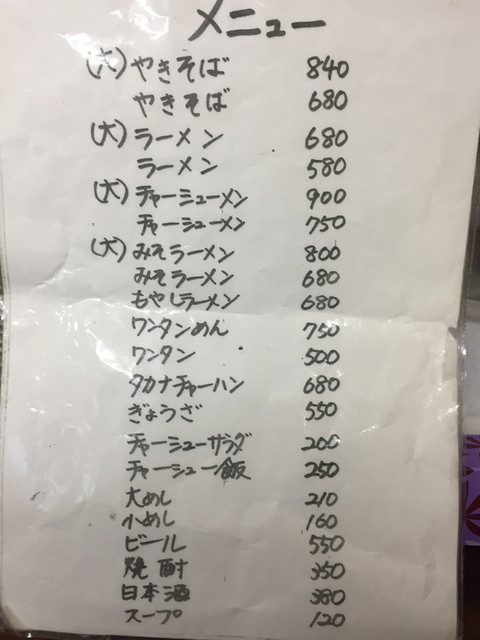 メニュー
(大) やきそば 840
やきそば 680
(大) ラーメン 680
ラーメン 580
(大) チャーシューメン 900
チャーシューメン 750
(大) みそラーメン 800
みそラーメン 680
もやしラーメン 680
ワンタンめん 750
ワンタン 500
タカナチャーハン 680
ぎょうざ 550
チャーシューサラダ 200
チャーシュー飯 250
大めし 210
小めし 160
ビール 550
焼酎 350
日本酒 380
スープ 120